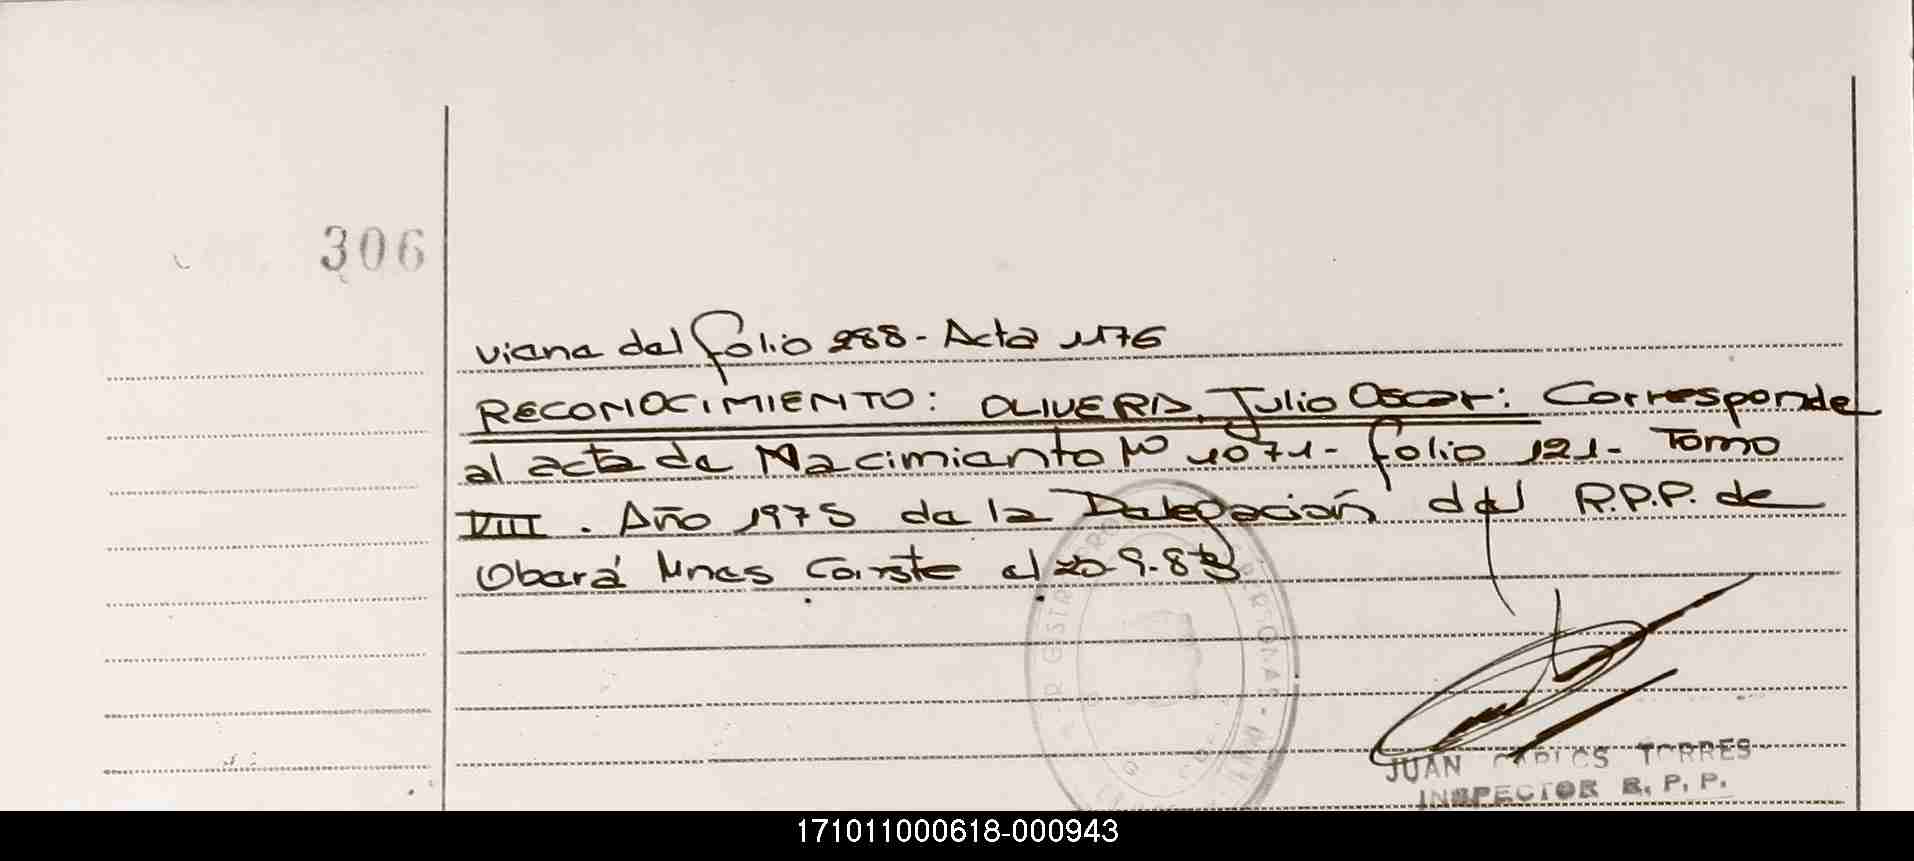 306
viene del folio 288 - Acta 1176
RECONOCIMIENTO: OLIVERA, Julio Oscar: Corresponde
al acta de Nacimiento Nº 1071 - folio 121 - Tomo
VIII. Año 1975 de la Delegación del R.P.P. de
Oberá Mnes Conste el 20-9-83
JUAN CARLOS TORRES
INSPECTOR R. P. P.
171011000618-000943